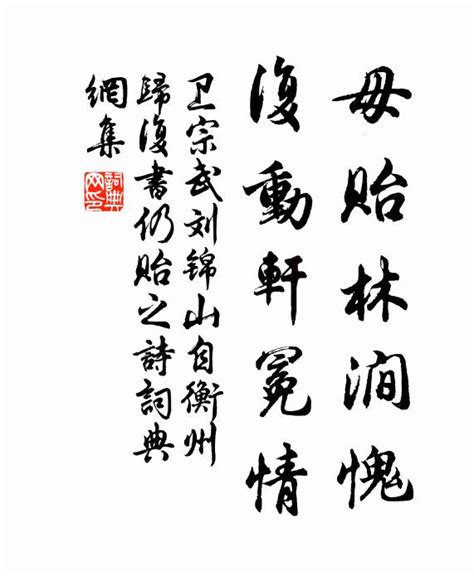 毋貽林澗愧
復動軒冕情
卫宗武刘锦山自衡州
歸復書仍貽之詩詞典
網集
詞典
网